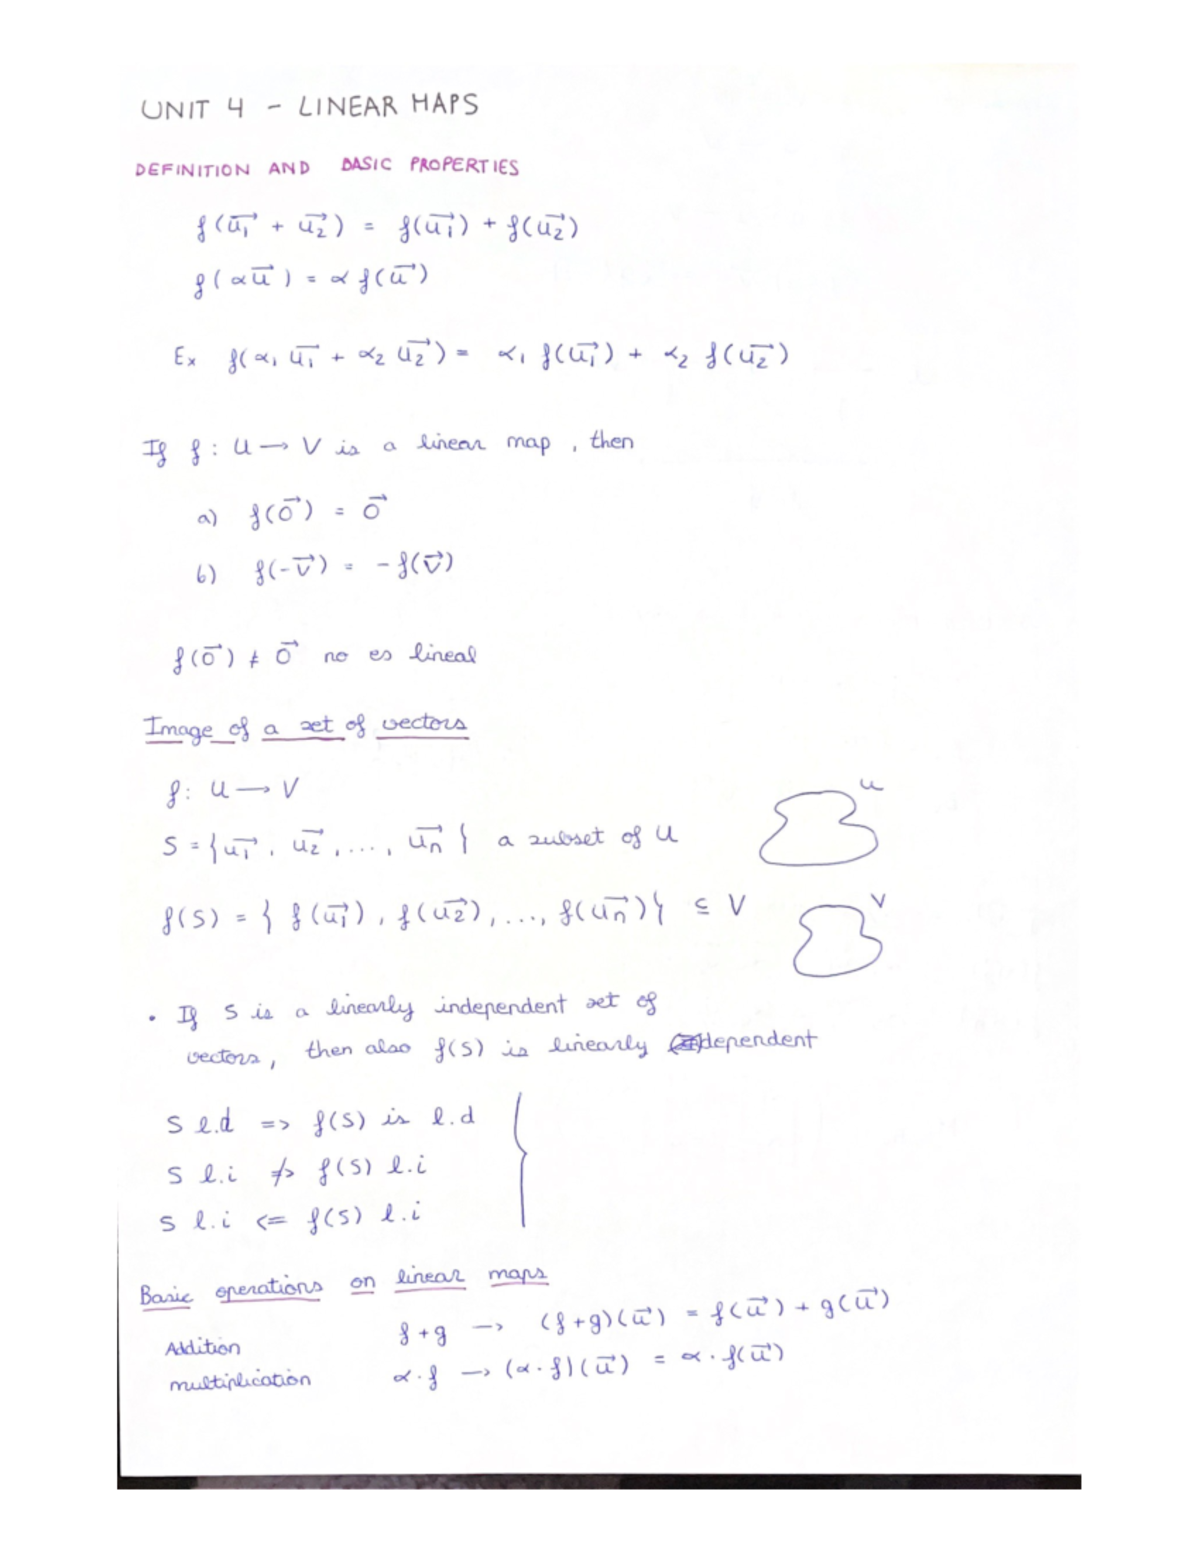 UNIT 4 - LINEAR MAPS
DEFINITION AND BASIC PROPERTIES
f(u₁⃗ + u₂⃗) = f(u₁⃗) + f(u₂⃗)
f(αu⃗) = αf(u⃗)
Ex f(α₁ u₁⃗ + α₂ u₂⃗) = α₁ f(u₁⃗) + α₂ f(u₂⃗)
If f: U → V is a linear map, then
a) f(0⃗) = 0⃗
b) f(-v⃗) = -f(v⃗)
f(0⃗) ≠ 0⃗ no es lineal
Image of a set of vectors
f: U → V
U
S = {u₁⃗, u₂⃗, ..., uₙ⃗} a subset of U
f(S) = {f(u₁⃗), f(u₂⃗), ..., f(uₙ⃗)} ⊆ V
V
• If S is a linearly independent set of
vectors, then also f(S) is linearly dependent
S l.d => f(S) is l.d
S l.i ≠> f(S) l.i
S l.i <= f(S) l.i
Basic operations on linear maps
Addition f+g → (f+g)(u⃗) = f(u⃗) + g(u⃗)
multiplication α·f → (α·f)(u⃗) = α·f(u⃗)